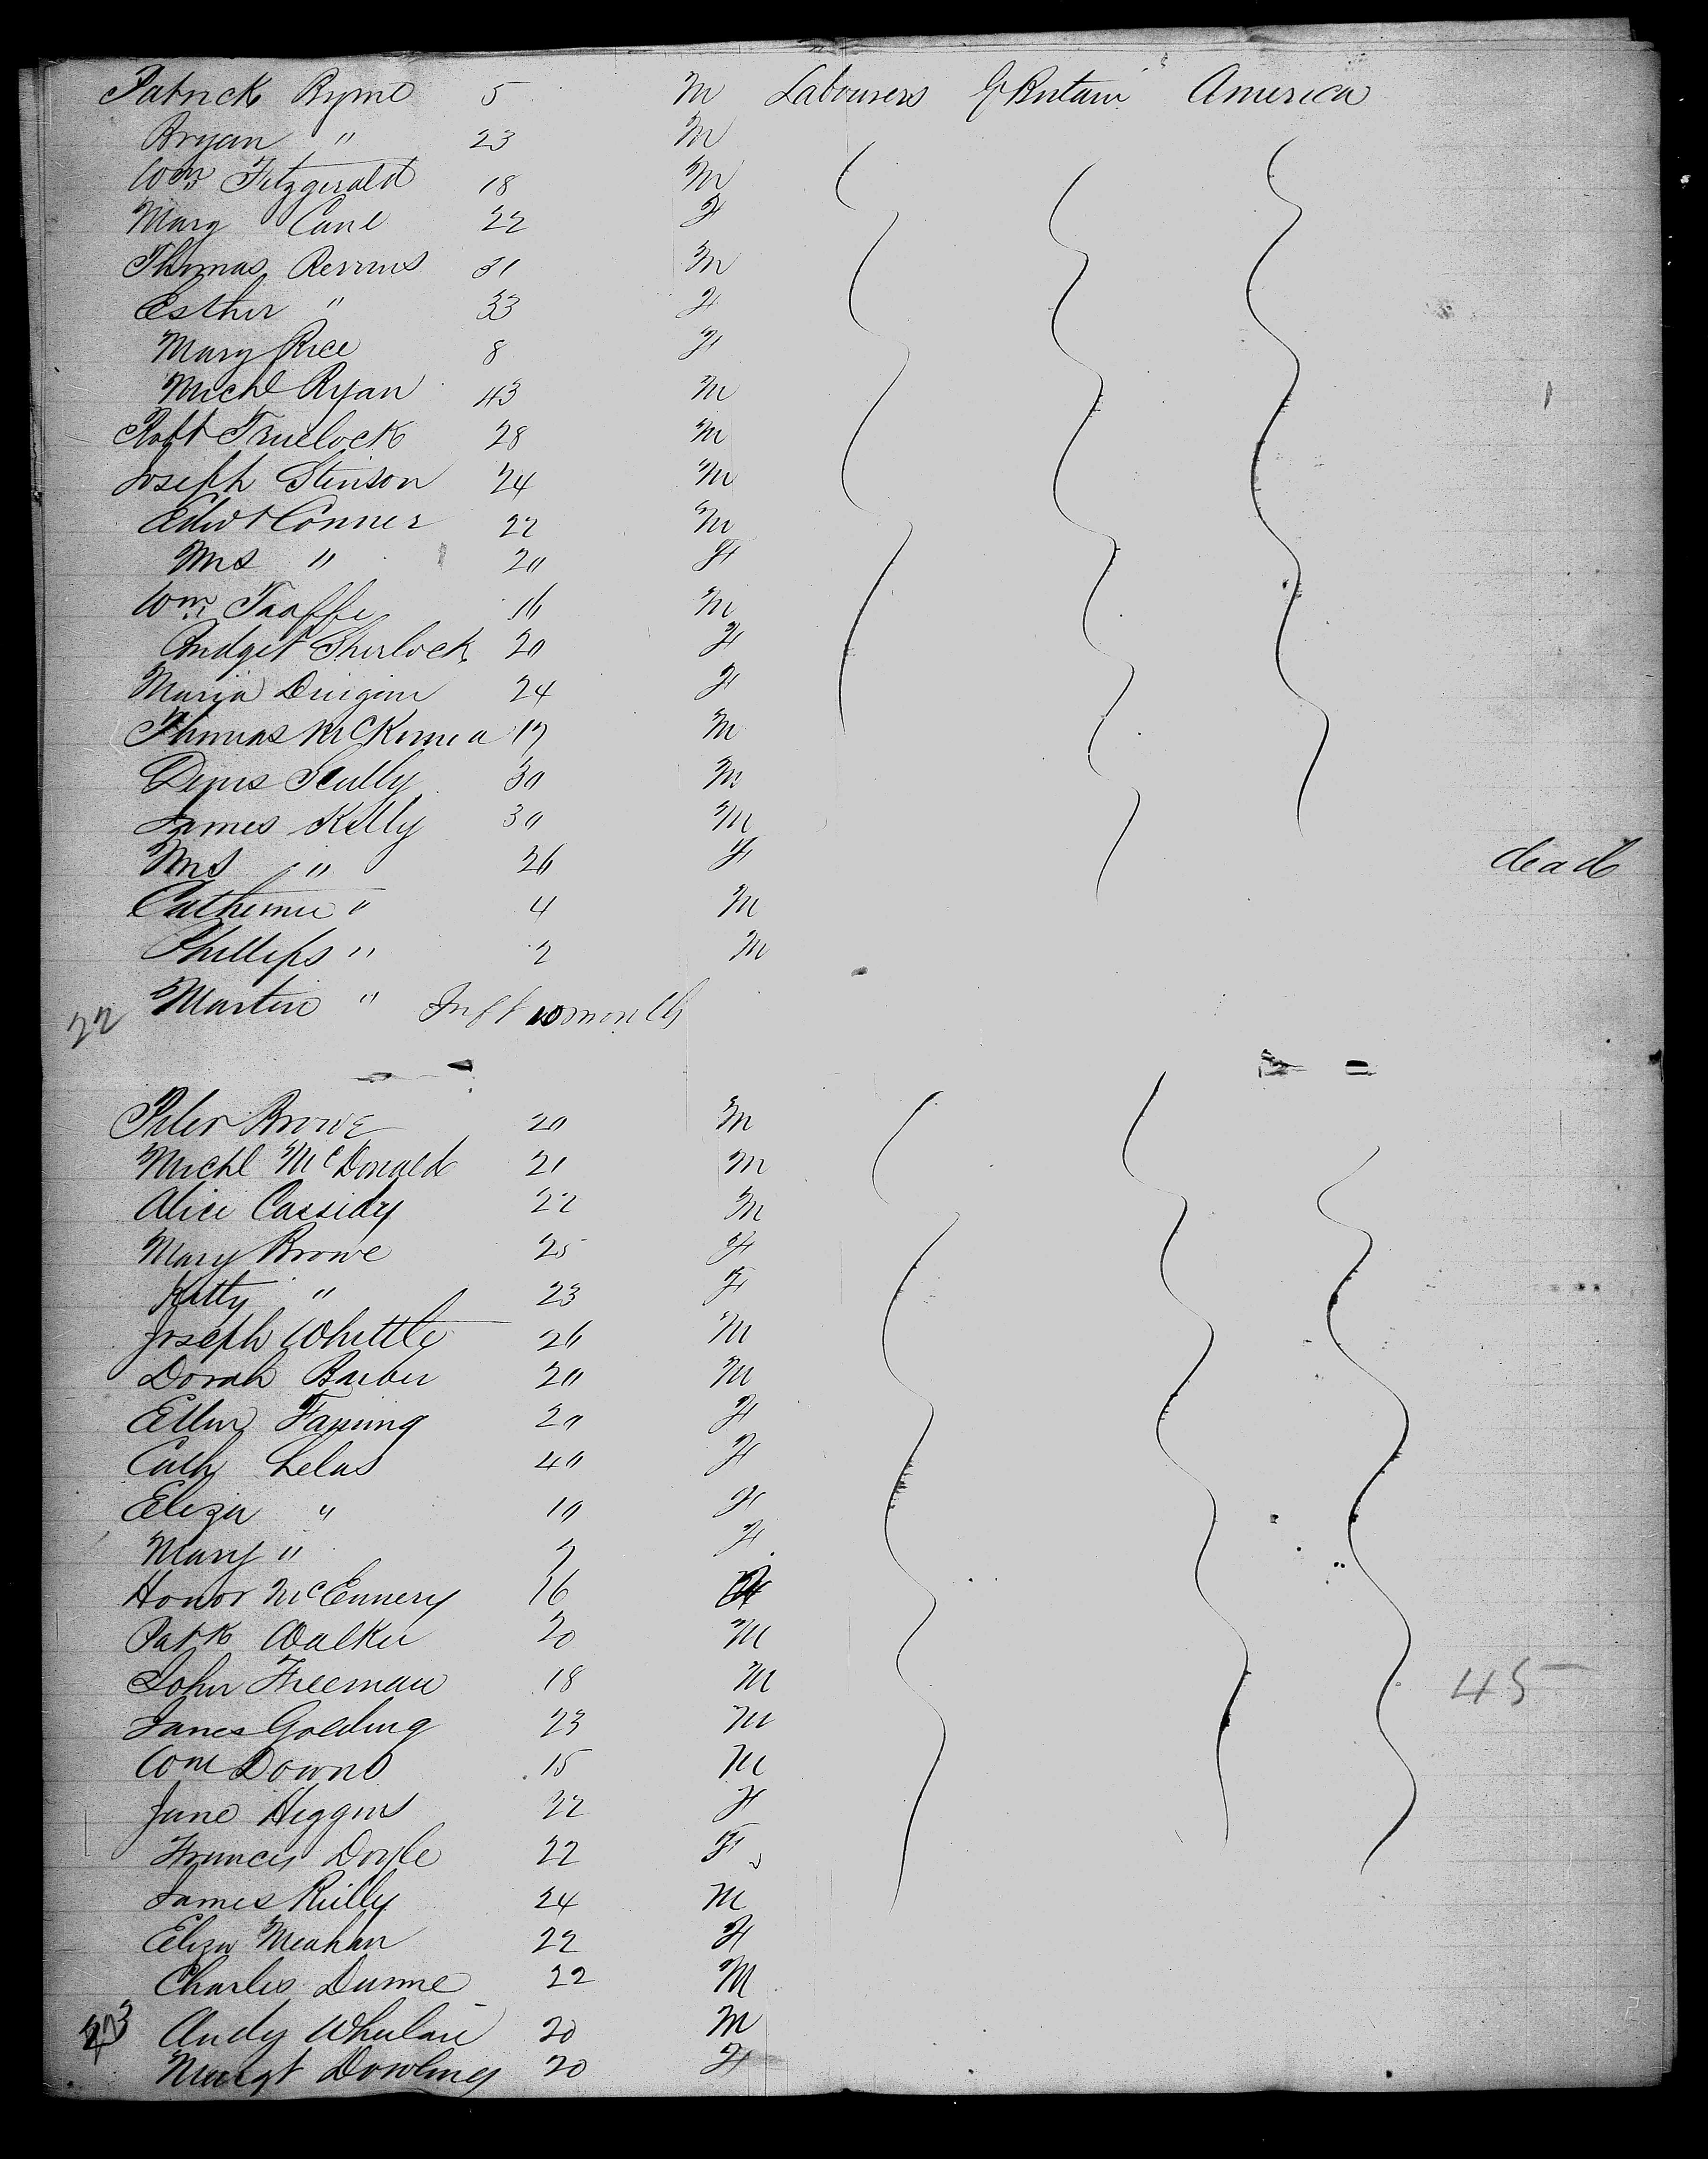 Patrick Byrne 5 M Labourers G Britain America
Bryan " 23 M
Wm Fitzgerald 18 M
Mary Cane 22 F
Thomas 31 M
Esther " 33 F
Mary Rice 8 F
Michl Ryan 43 M
Robt Truelock 28 M
Joseph Stinson 24 M
Edwd Conner 22 M
Mrs " 20 F
Wm Taaffe 16 M
Bridget Sherlock 20 F
Maria 24 F
Thomas McKenna 17 M
Denis Scully 30 M
James Kelly 30 M
Mrs " 26 F dead
Catherine " 4 M
Phillips " 2 M
22 Martin " Inft 10 month
Peter Browe 20 M
Michl McDonald 21 M
Alice Cassidy 22 M
Mary Browe 25 F
Katty " 23 F
Joseph Whittle 26 M
Dorah Barber 20 M
Ellen Fanning 20 F
Cath Lelas 40 F
Eliza " 10 F
Mary " 7 F
Honor McEnnery 16
Patk Walker 20 M
John Freeman 18 M 45
James Golding 23 M
Wm Down 15 M
Jane Higgins 22 F
Francis Doyle 22 F
James Reilly 24 M
Eliza Meahan 22 F
Charles Dunne 22 M
23 Andy Whelan 20 M
Margt Dowling 20 F